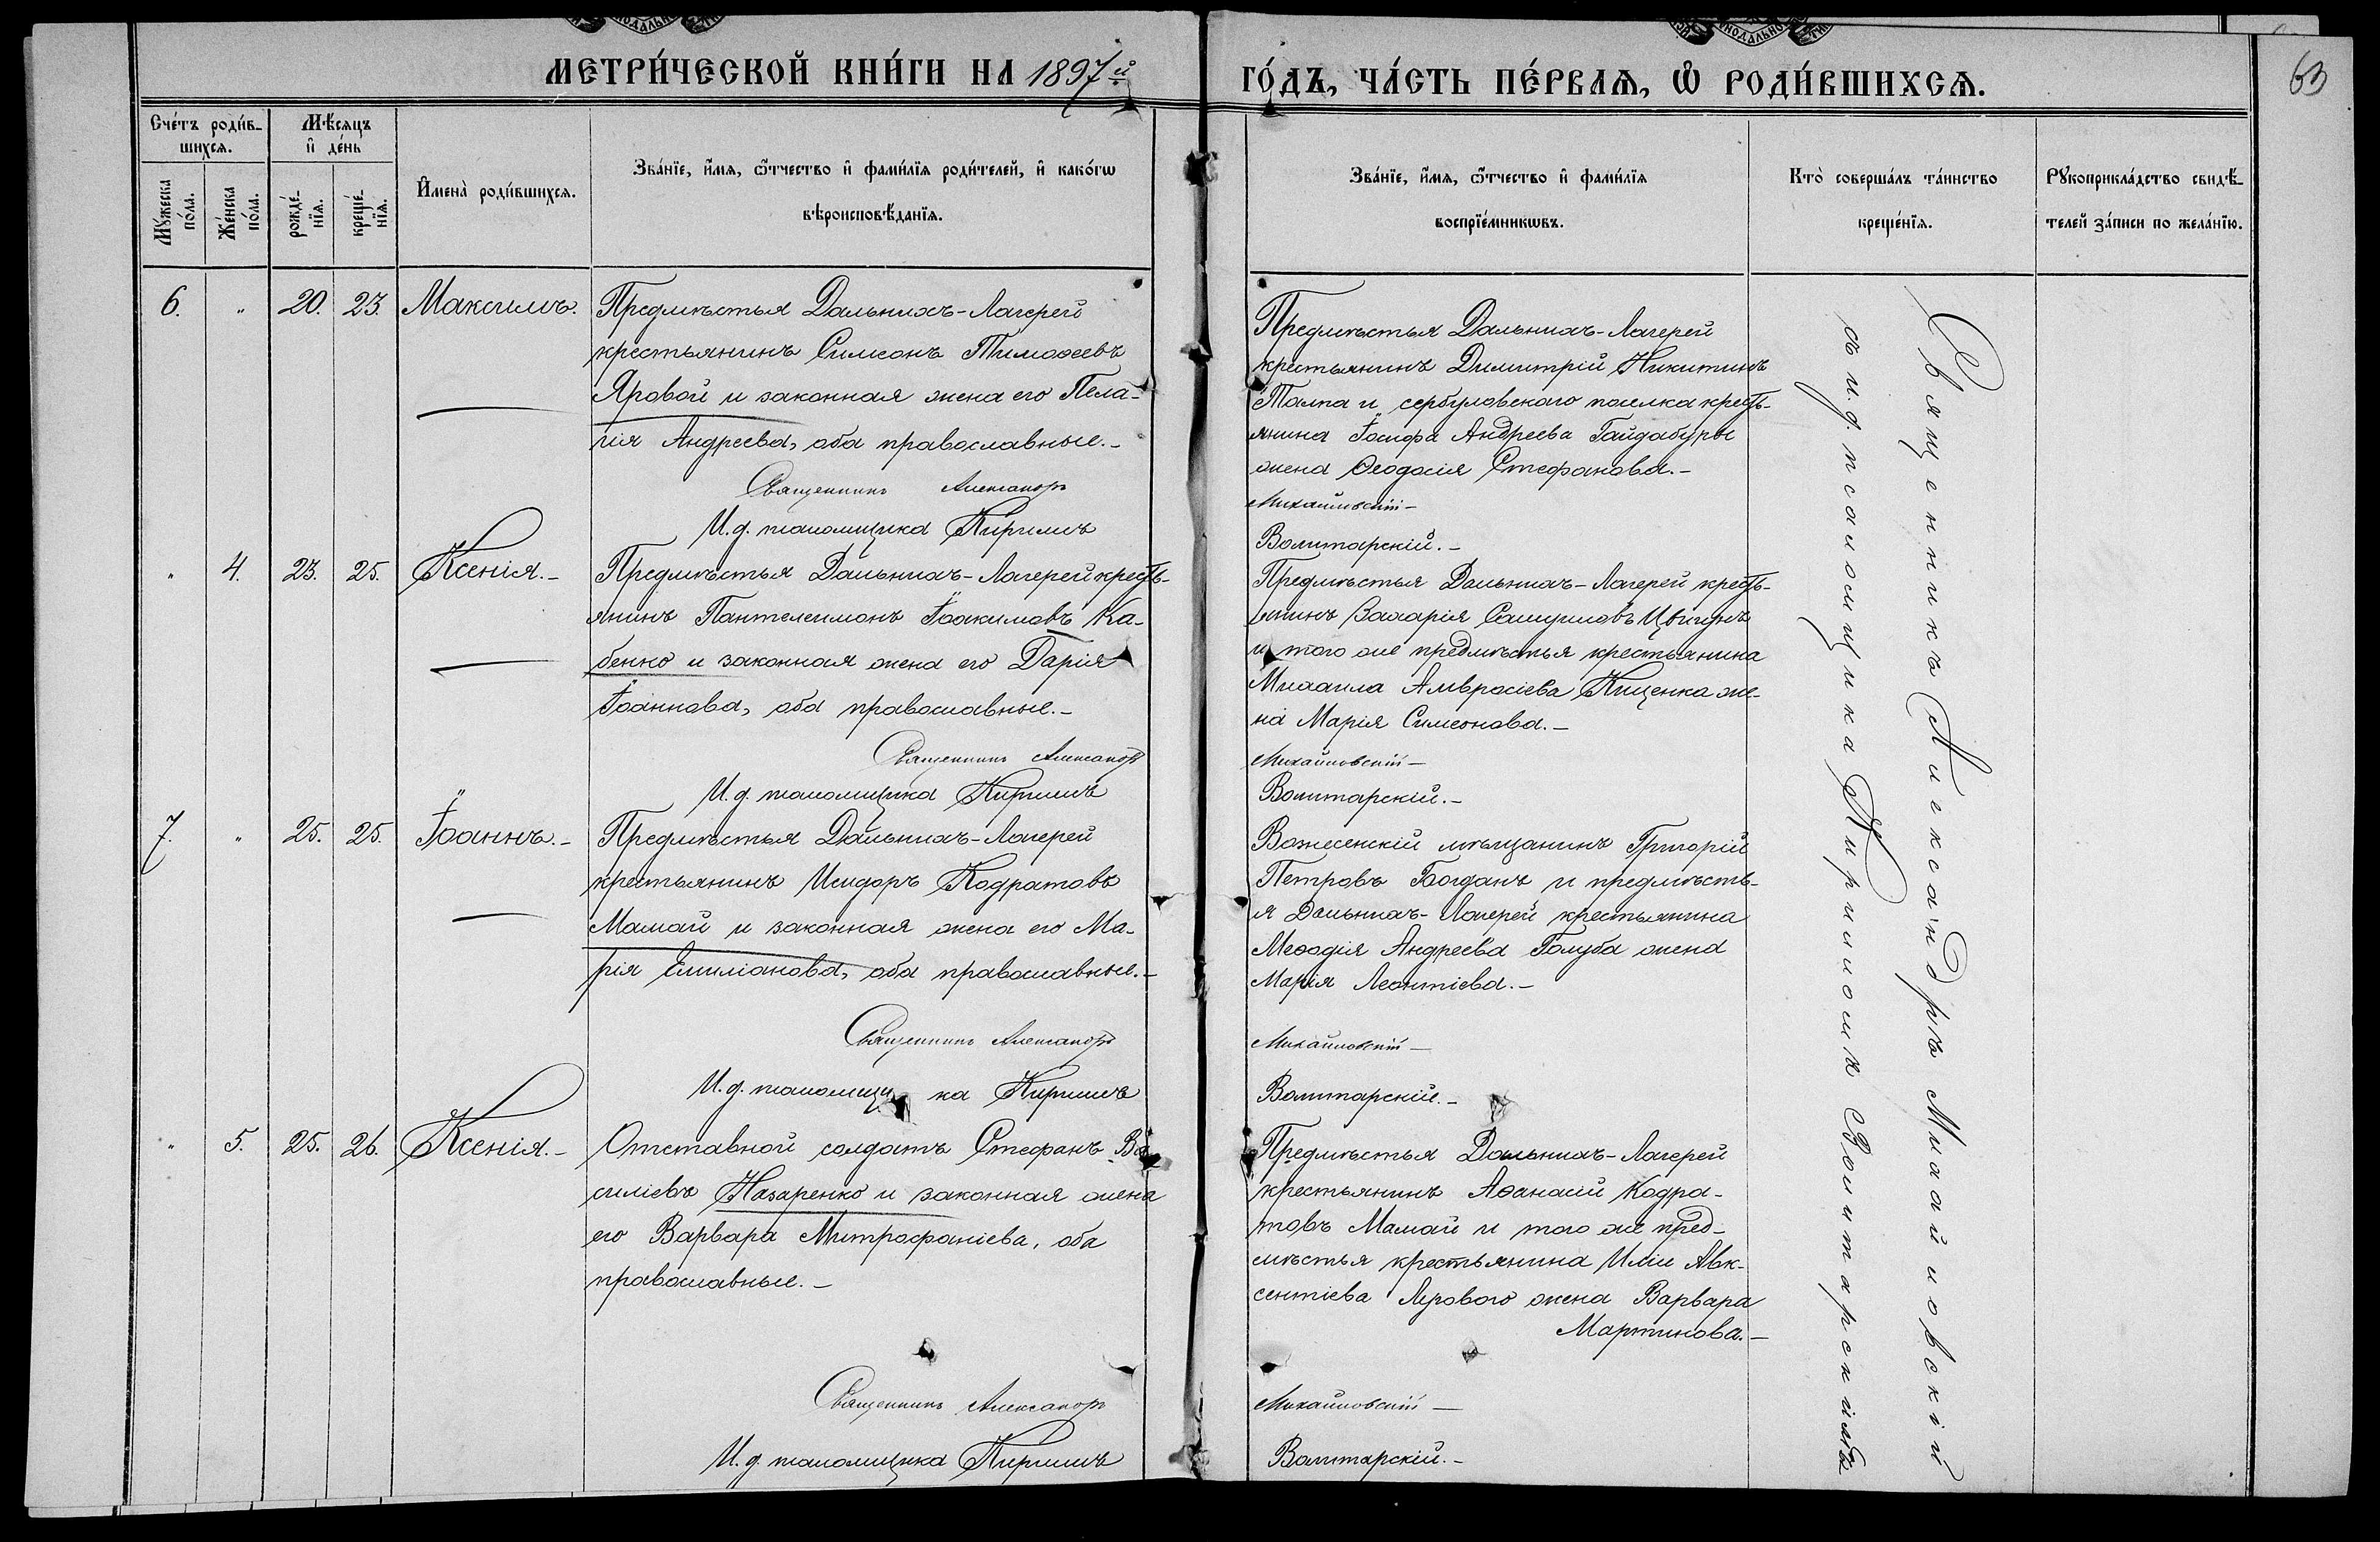 МЕТРИ́ЧЕСКОЙ КНИ́ГИ НА 1897й ГО́ДЪ, ЧА́СТЬ ПЕ́РВАѦ, Ѡ҆ РОДИ́ВШИХСѦ.
63
Сче́тъ роди́в-
шихсѧ.
Мꙋ́жеска по́ла.
Же́нска по́ла.
Мѣ́сѧцъ
и҆ де́нь
рожде́-
нїѧ.
креще́-
нїѧ.
И҆мена̀ роди́вшихсѧ.
Зва́нїе, и҆́мѧ, ѻ҆́тчество и҆ фами́лїѧ роди́телей, и҆ како́гѡ
вѣроисповѣ́данїѧ.
Зва́нїе, и҆́мѧ, ѻ҆́тчество и҆ фами́лїѧ
воспрїе́мникѡвъ.
Кто̀ соверша́лъ та́инство
креще́нїѧ.
Рꙋкоприкла́дство свидѣ́-
телей за́писи по жела́нїю.
6. " 20. 23. Максимъ.
Предмѣстья Дальнихъ-Лагерей
крестьянинъ Симеонъ Тимоѳеевъ
Яровой и законная жена его Пела-
гія Андреева, оба православные.-
Священникъ Александръ
И.д. псаломщика Кириллъ
Предмѣстья Дальнихъ-Лагерей
крестьянинъ Димитрій Никитинъ
Талпа и сербуловскаго поселка кресть-
янина Іосифа Андреева Гайдабуры
жена Ѳеодосія Стефанова.-
Михайловскій-
Волитарскій.-
" 4. 23. 25. Ксенія.-
Предмѣстья Дальнихъ-Лагерей кресть-
янинъ Пантелеимонъ Іоакимовъ Ка-
бенко и законная жена его Дарія
Іоаннова, оба православные.-
Священникъ Александръ
И.д. псаломщика Кириллъ
Предмѣстья Дальнихъ-Лагерей кресть-
янинъ Захарія Самуиловъ Цвигунъ
и того же предмѣстья крестьянина
Михаила Амвросіева Кищенка же-
на Марія Симеонова.-
Михайловскій-
Волитарскій.-
7. " 25. 25. Іоаннъ.-
Предмѣстья Дальнихъ-Лагерей
крестьянинъ Исидоръ Кодратовъ
Мамай и законная жена его Ма-
рія Емиліанова, оба православные.-
Священникъ Александръ
И.д. псаломщика Кириллъ
Вознесенскій мѣщанинъ Григорій
Петровъ Богданъ и предмѣсть-
я Дальнихъ-Лагерей крестьянина
Меѳодія Андреева Голуба жена
Марія Леонтіева.-
Михайловскій-
Волитарскій.-
" 5. 25. 26. Ксенія.-
Отставной солдатъ Стефанъ Ва-
силіевъ Назаренко и законная жена
его Варвара Митрофаніева, оба
православные.-
Священникъ Александръ
И.д. псаломщика Кириллъ
Предмѣстья Дальнихъ-Лагерей
крестьянинъ Аѳанасій Кодра-
товъ Мамай и того же пред-
мѣстья крестьянина Иліи Авк-
сентіева Ярового жена Варвара
Мартинова.-
Михайловскій-
Волитарскій.-
Священникъ Александръ Михайловскій
съ и.д. псаломщика Кирилломъ Волитарскимъ